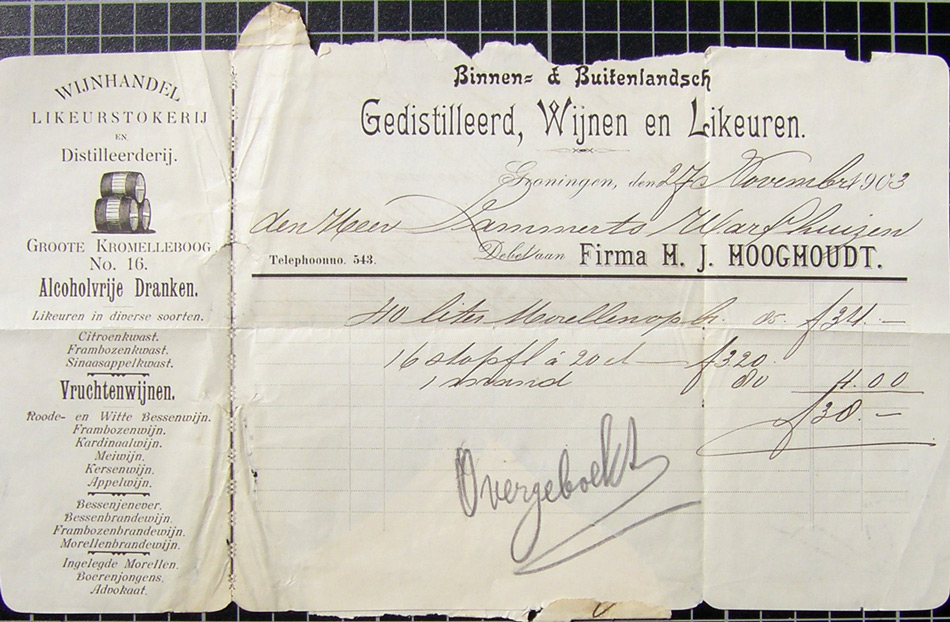 WIJNHANDEL
LIKEURSTOKERIJ
EN
Distilleerderij.
GROOTE KROMELLEBOOG
No. 16.
Alcoholvrije Dranken.
Likeuren in diverse soorten.
Citroenkwast.
Frambozenkwast.
Sinaasappelkwast.
Vruchtenwijnen.
Roode- en Witte Bessenwijn.
Frambozenwijn.
Kardinaalwijn.
Meiwijn.
Kersenwijn.
Appelwijn.
Bessenjenever.
Bessenbrandewijn.
Frambozenbrandewijn.
Morellenbrandewijn.
Ingelegde Morellen.
Boerenjongens.
Advokaat.
Binnen- & Buitenlandsch
Gedistilleerd, Wijnen en Likeuren.
Groningen, den 27 November 1903
den Heer Lammerts Warfhuizen
Telephoonno. 543. Debet aan Firma H. J. HOOGHOUDT.
40 liter Morellen op b. f 34.-
16 stopfl à 20 ct f 3.20
1 mand 80 4.00
f 38.-
Overgeboekt